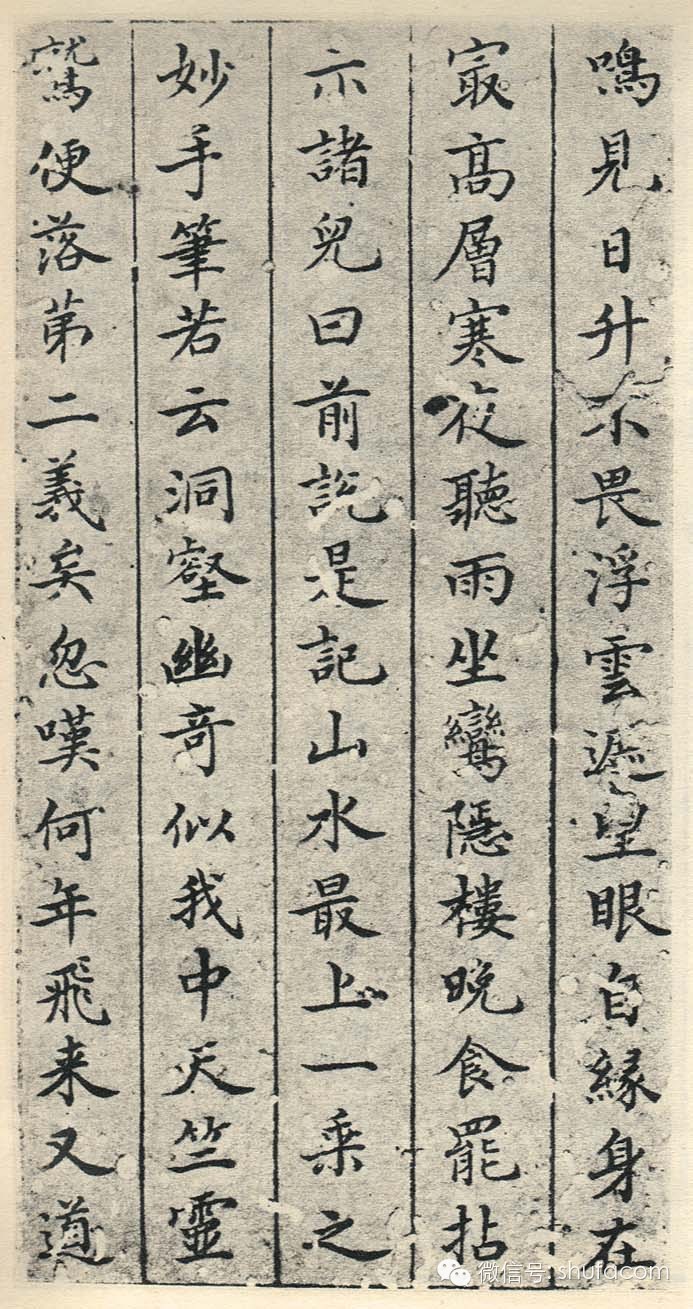 鳴見日升不畏浮雲遮望眼自緣身在
㝡高層寒夜聽雨坐鸞隱樓晚食罷拈
示諸兒曰前說是記山水最上一乘之
妙手筆若云洞壑幽奇似我中天竺靈
鷲便落第二義矣忽嘆何年飛来又道
微信号: shufacom